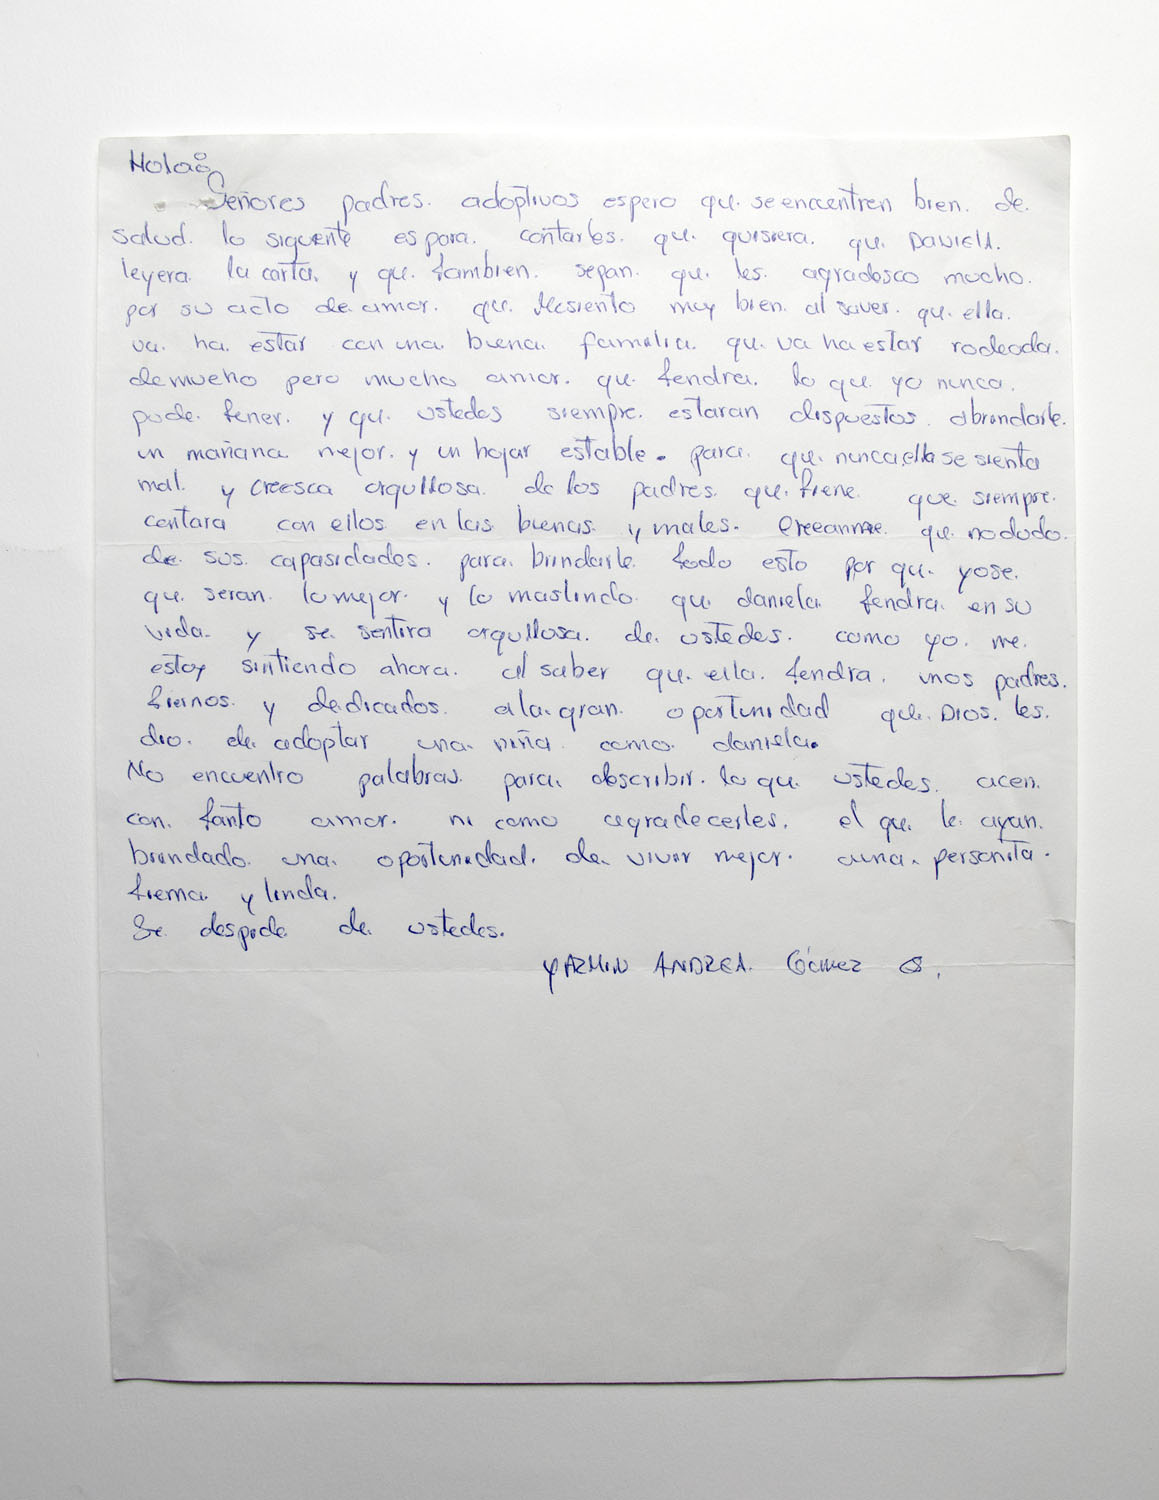 Hola:
Señores padres. adoptivos espero que. se encuentren bien. de.
salud. lo siguente es para. contarles. que. quisiera. que. DANIELA.
leyera. la carta. y que. tambien. sepan. que. les. agradesco mucho.
por su acto de amor. que. Mesiento muy bien. al saver. que. ella.
va. ha. estar con una. buena. familia. que. va ha estar rodeada.
de mucho pero mucho amor. que. tendra. lo que. yo nunca.
pude. tener. y que. ustedes siempre. estaran dispuestos. abrindarle.
un mañana mejor. y un hojar estable. para. que. nunca ella se sienta
mal. y creesca orgullosa. de los padres. que. tiene. que siempre.
contara con ellos en las buenas. y males. Creeanme. que. no dudo.
de. sus. capasidades. para. brindarle. todo esto por que. yose.
que. seran. lo mejor. y lo maslindo. que. daniela. tendra. en su
vida. y se. sentira orgullosa. de. ustedes. como yo. me.
estoy sintiendo ahora. al saber que. ella. tendra. unos padres.
tiernos. y dedicados. a la gran. oportunidad que. Dios. les.
dio. de. adoptar una. niña. como. daniela.
No encuentro palabras. para. describir. lo que. ustedes. acen.
con. tanto amor. ni como agradecerles. el que. le. ayan.
brindado. una. oportunidad. de. vivir mejor. auna. personita.
tierna. y linda.
Se. despide. de. ustedes.
YAZMIN ANDREA. Gómez G.